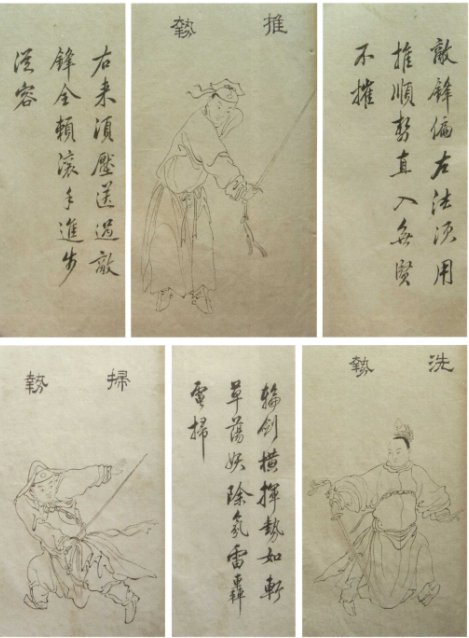 敵鋒偏左法須用
推順勢直入無堅
不摧
推勢
右来須壓送過敵
鋒全賴滚手進步
從容
洗勢
輪劍橫揮勢如斬
草蕩妖除氛雷轟
電掃
掃勢